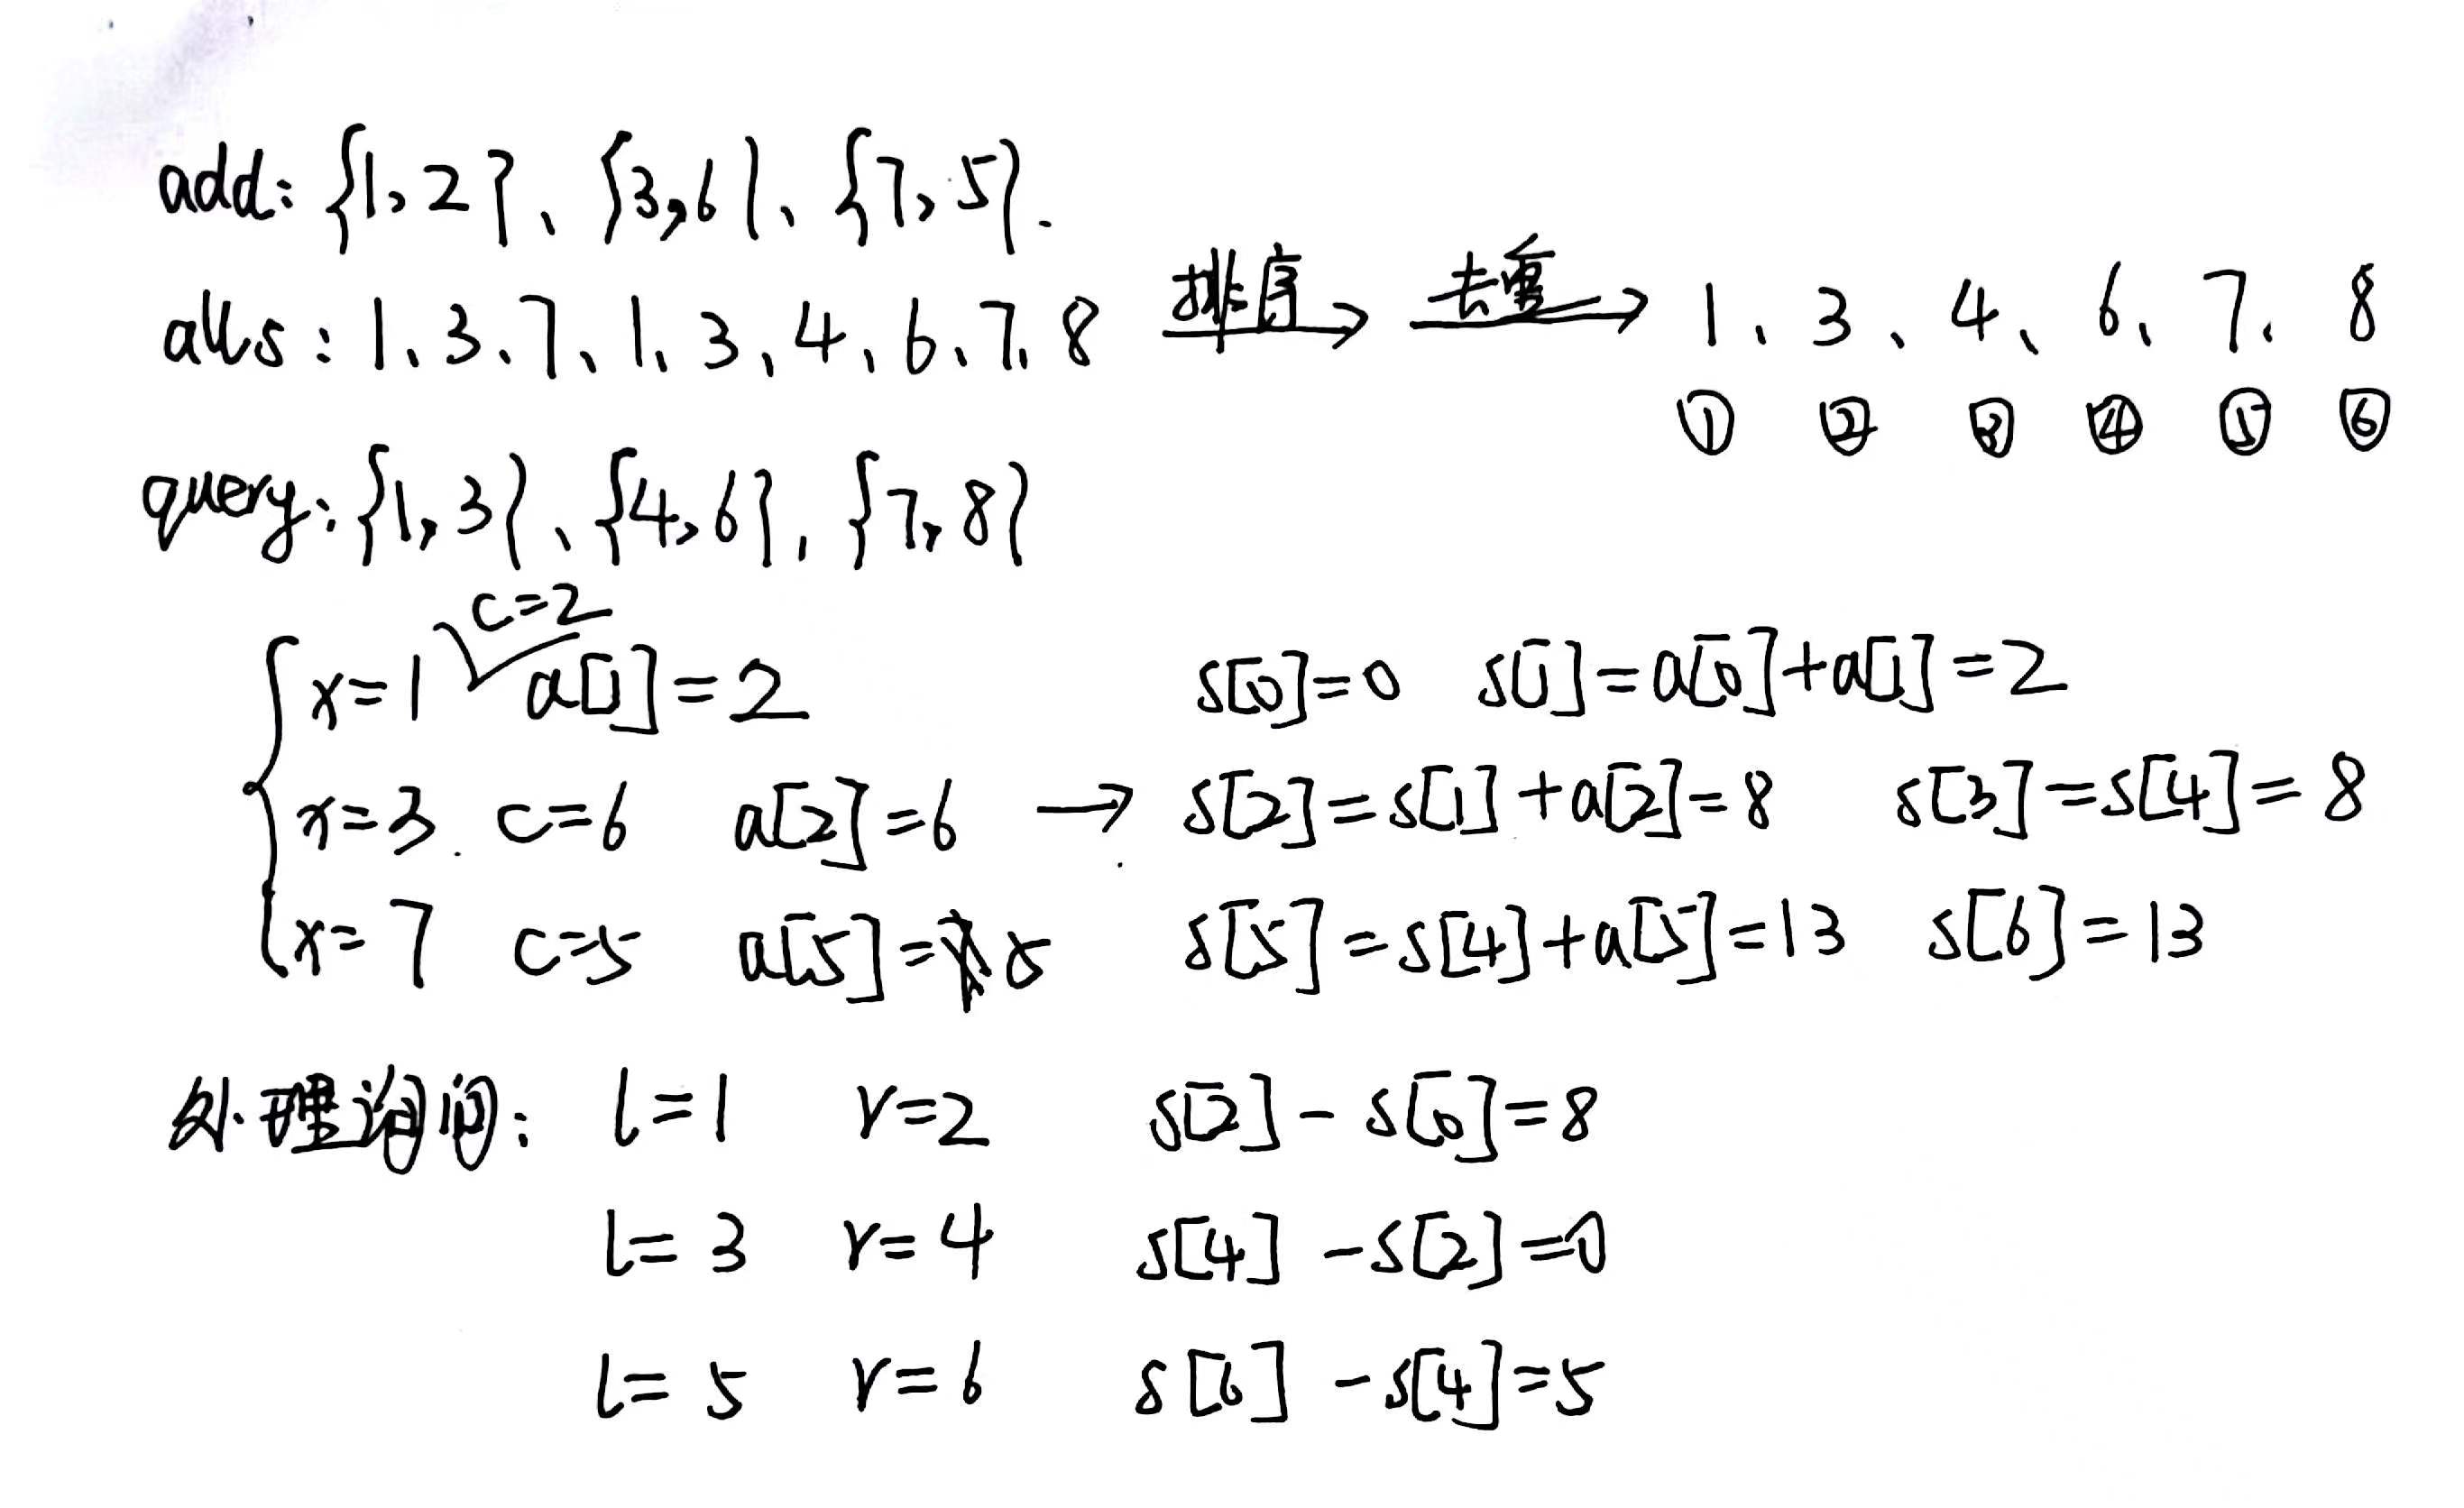 add: {1,2}、{3,6}、{7,5}.
alls: 1、3、7、1、3、4、6、7、8 排序→ 去重→ 1、3、4、6、7、8
① ② ③ ④ ⑤ ⑥
query: {1,3}、{4,6}、{7,8}
c=2
x=1 a[1]=2 s[0]=0 s[1]=a[0]+a[1]=2
x=3. c=6 a[2]=6 → s[2]=s[1]+a[2]=8 s[3]=s[4]=8
x=7 c=5 a[5]=5 s[5]=s[4]+a[5]=13 s[6]=13
处理询问: l=1 r=2 s[2]-s[0]=8
l=3 r=4 s[4]-s[2]=0
l=5 r=6 s[6]-s[4]=5